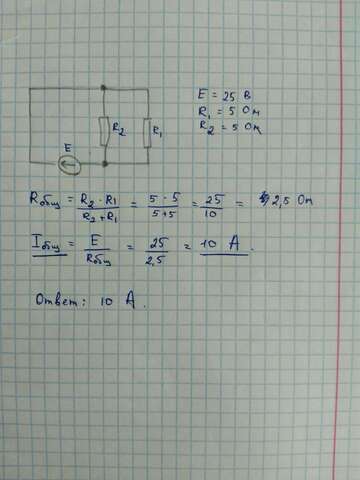 E = 25 В
R1 = 5 Ом
R2 = 5 Ом
R2
R1
E
Rобщ = R2 · R1 / R2 + R1 = 5 · 5 / 5 + 5 = 25 / 10 = 2,5 Ом
Iобщ = E / Rобщ = 25 / 2,5 = 10 А.
Ответ: 10 А.